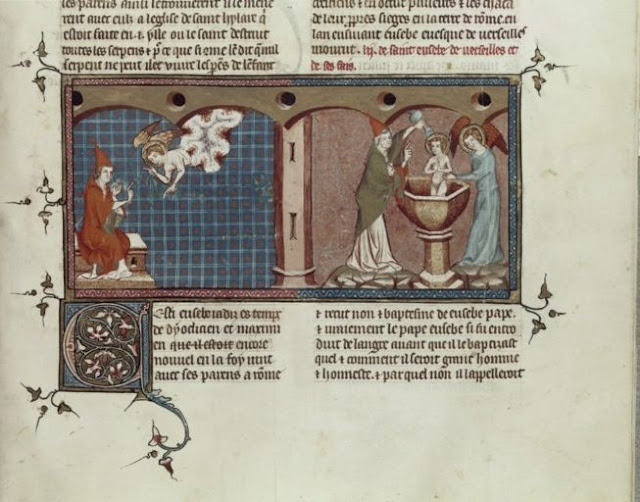 les parens quil le trouuerent il le mene
rent auec eulz a leglise de saint hylaire q
estoit faite en .i. ylle ou le saint destruit
toutes les serpens et que si len dit
serpent ne peut illec viure les pens de lenfant
crestiens et en occist pluseurs et les chaca
de leurs propres sieges en la terre de rome. en
lan ensuiuant eusebe euesque de verseilles
mourut. de saint eusebe de verseilles et
de ses fais.
Cesti eusebe iadiz es temps
de dyoclicien et maximi
en que il estoit encore
nouuel en la foy vint
auec ses parens a rome
⁊ recut non ⁊ baptesme de eusebe pape.
⁊ vraiement le pape eusebe si fu entro
duit de langre auant que il le baptizast
quel ⁊ comment il seroit grant homme
⁊ honneste. ⁊ par quel non il lappelleroit